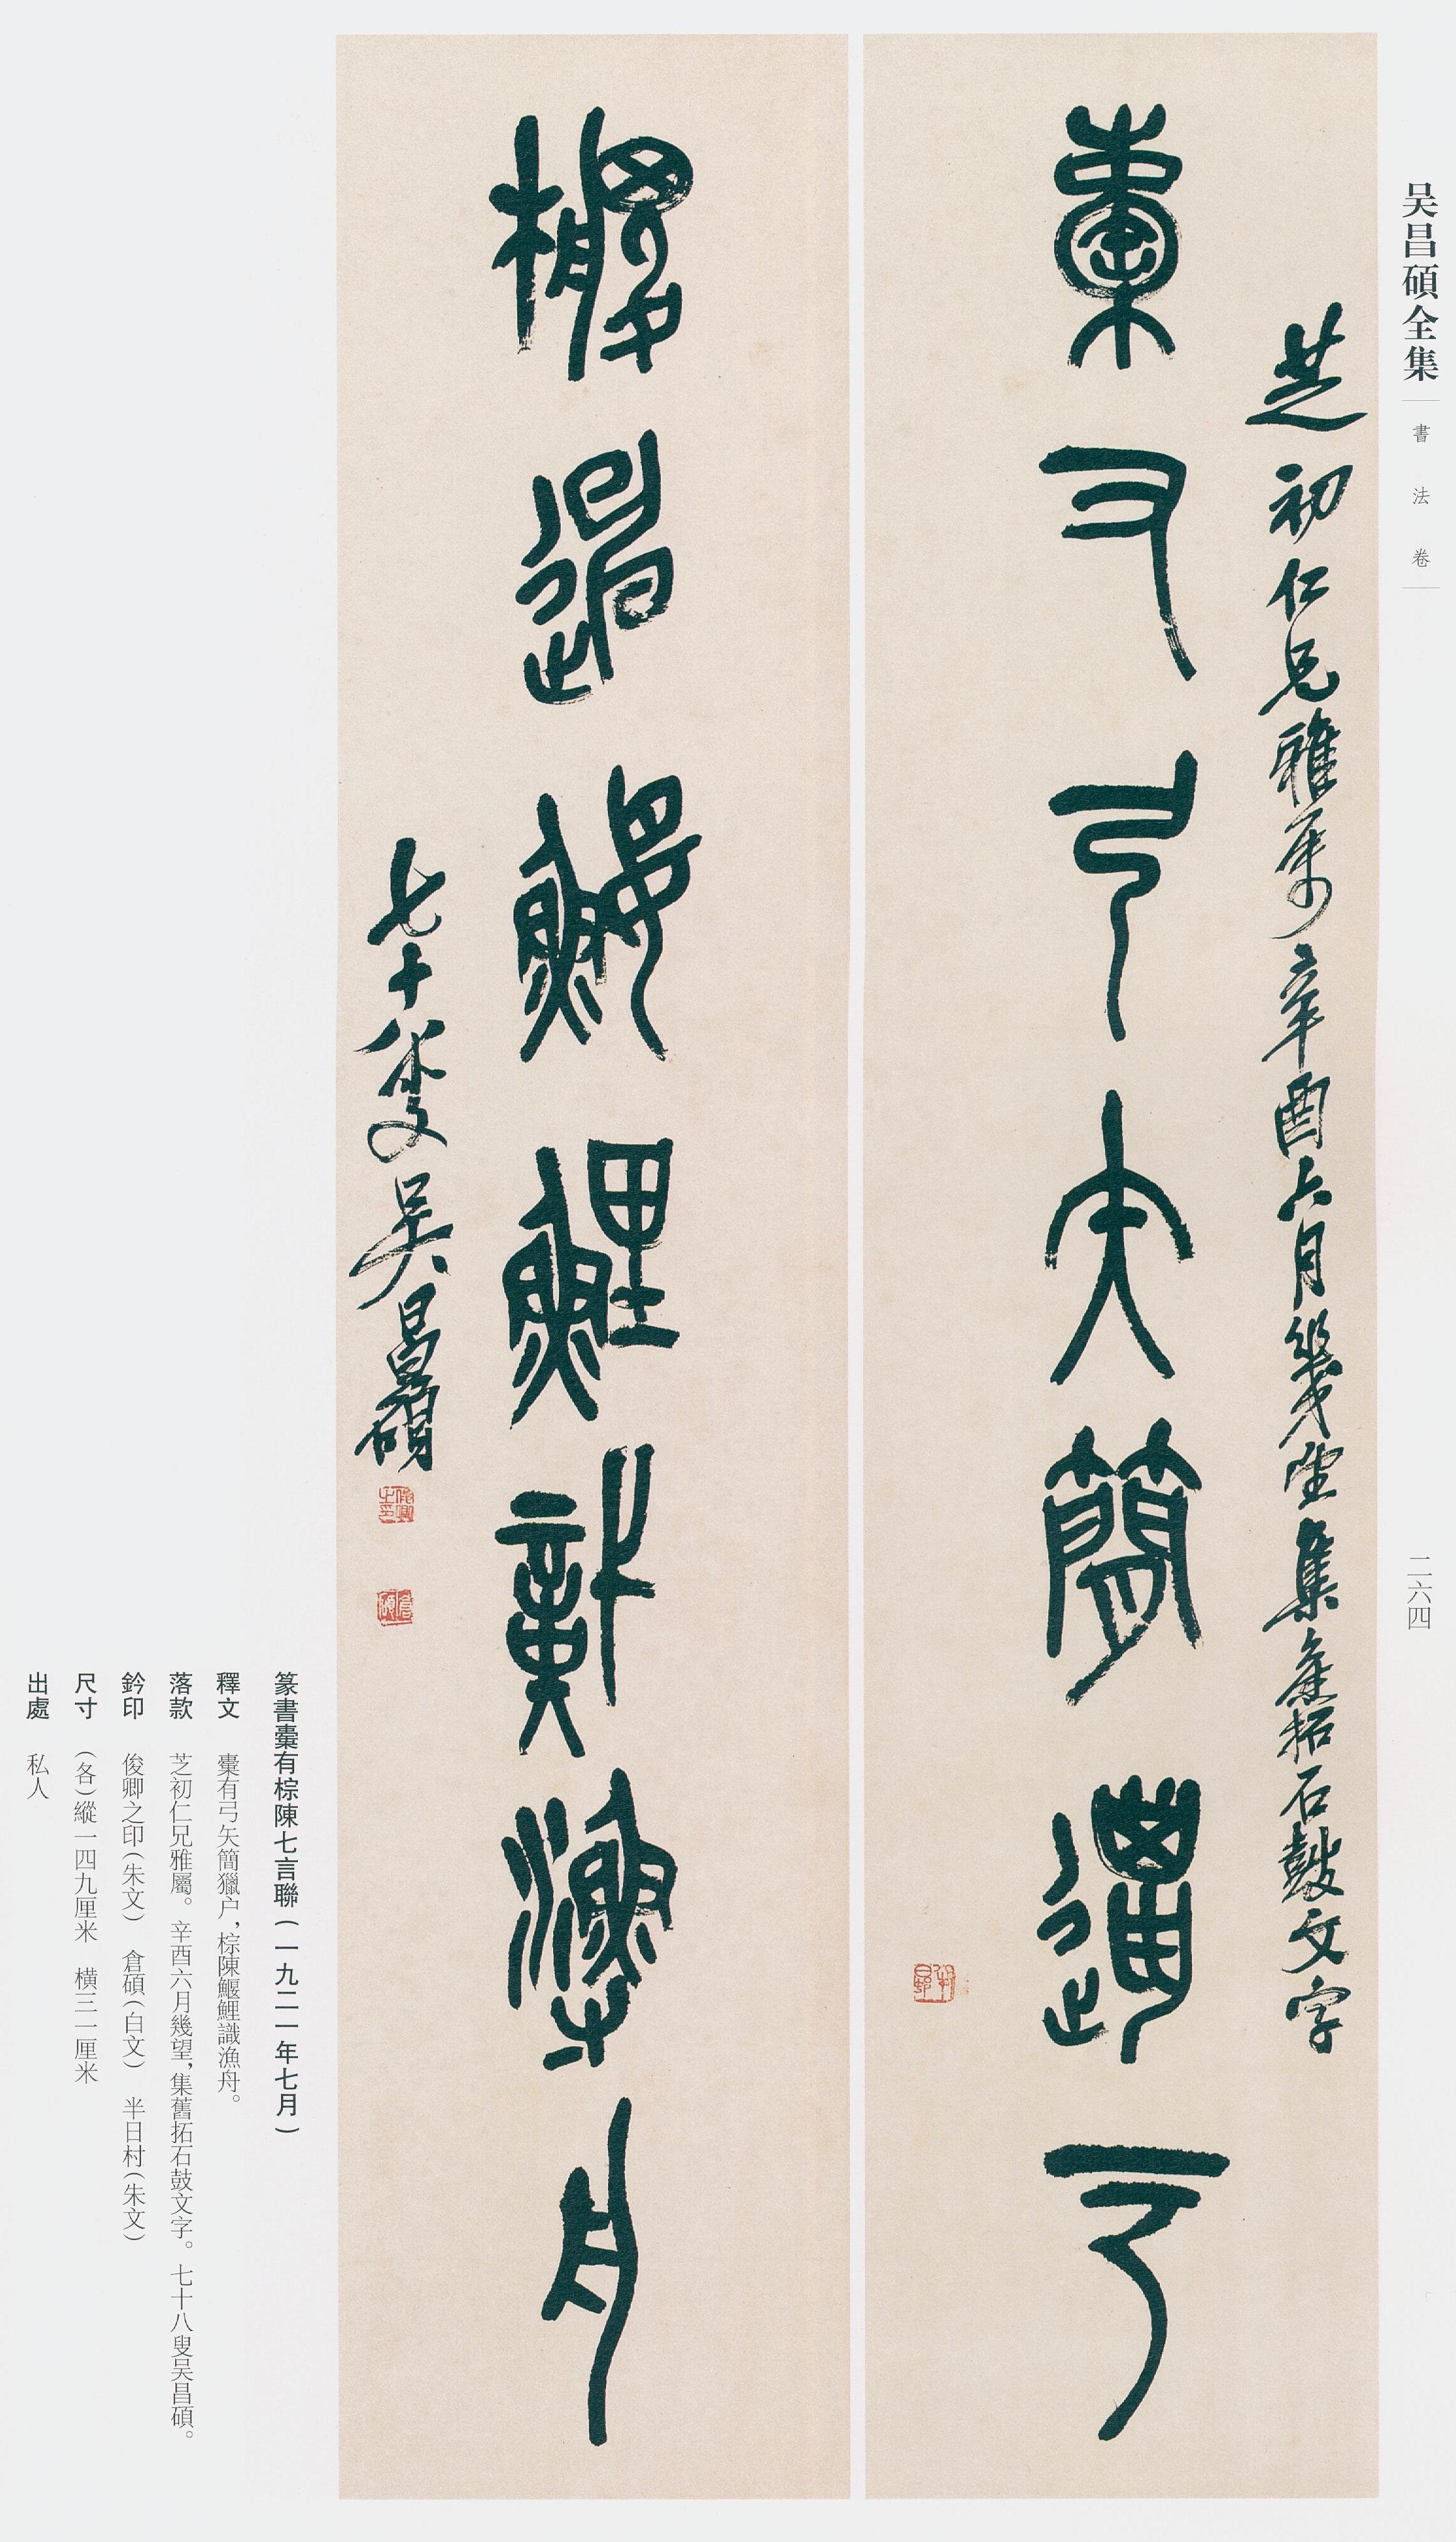 吴昌碩全集
書法卷
二六四
芝初仁兄雅属辛酉六月幾望集舊拓石鼓文字
櫜有弓矢簡獵户
半日邨
棕陳鰋鯉識漁舟
七十八叟吴昌碩
俊卿之印
倉碩
篆書櫜有棕陳七言聯(一九二一年七月)
釋文 櫜有弓矢簡獵户,棕陳鰋鯉識漁舟。
落款 芝初仁兄雅屬。辛酉六月幾望,集舊拓石鼓文字。七十八叟吴昌碩。
鈐印 俊卿之印(朱文) 倉碩(白文) 半日村(朱文)
尺寸 (各)縱一四九厘米 橫三一厘米
出處 私人